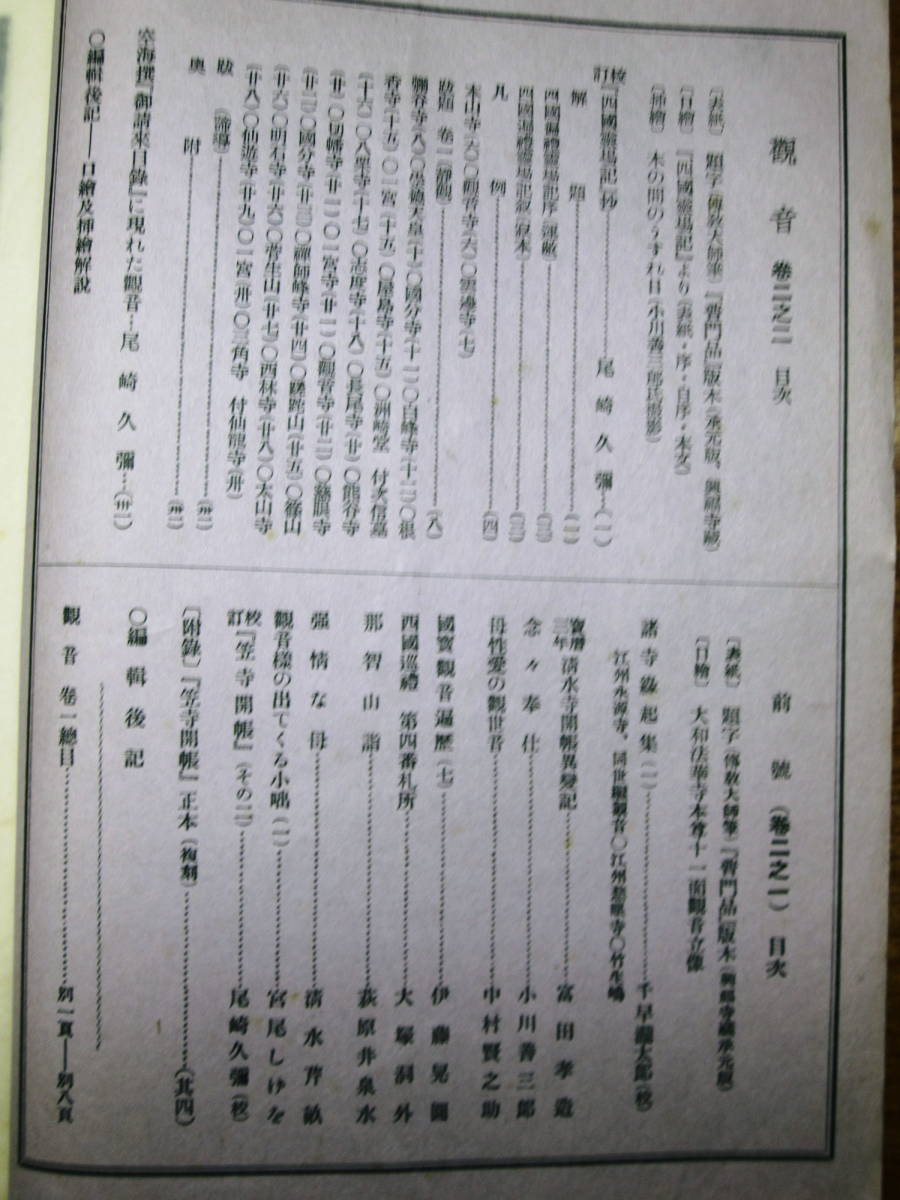 觀音 卷二之二 目次
〔表紙〕 題字(傳敎大師筆)『普門品』版木(承元版、興福寺藏)
〔口繪〕 『四國靈場記』より(表紙・序・自序・本文)
〔挿繪〕 木の間のうすれ日(小川善三郎氏撮影)
校訂『四國靈場記』抄……尾崎久彌…(一)
解題……(一)
四國徧禮靈場記序(運敞)……(三)
四國遍禮靈場記敍(寂本)……(三)
凡例……(四)
本山寺(六)〇觀音寺(六)〇雲邊寺(七)
跋題 卷二(靜觀)……(八)
彌谷寺(八)〇崇德天皇(十)〇國分寺(十一)〇白峰寺(十二)〇根
香寺(十五)〇一宮(十五)〇屋島寺(十五)〇洲崎堂 付次信墓
(十六)〇八栗寺(十七)〇志度寺(十八)〇長尾寺(廿)〇熊谷寺
(廿)〇切幡寺(廿一)〇一宮寺(廿一)〇觀音寺(廿二)〇慈眼寺
(廿二)〇國分寺(廿三)〇禪師峰寺(廿四)〇蹉跎山(廿五)〇篠山
(廿六)〇明石寺(廿六)〇菅生山(廿七)〇西林寺(廿八)〇太山寺
(廿八)〇仙遊寺(廿九)〇一宮(卅)〇三角寺 付仙龍寺(卅)
跋……(卅一)
奥附……(卅一)
空海撰『御請來目錄』に現れた觀音…尾崎久彌…(卅一)
〇編輯後記——口繪及挿繪解說
前號(卷二之一) 目次
〔表紙〕 題字(傳敎大師筆)『普門品』版木(興福寺藏承元版)
〔口繪〕 大和法華寺本尊十一面觀音立像
諸寺緣起集(一)……千早(校)
江州永源寺、同世繼觀音〇江州〇竹生嶋
寶曆三年淸水寺開帳異變記……富田孝造
念々奉仕……小川善三郎
母性愛の觀世音……中村賢之助
國寶觀音遍歷(七)……伊藤晃圓
四國巡禮 第四番札所……大塚洞外
那智山詣……荻原井泉水
强情な母……淸水芹畝
觀音樣の出てくる小咄(一)……宮尾しけを
校訂『笠寺開帳』(その二)……尾崎久彌(校)
〔附錄〕『笠寺開帳』正本(複刻)……(其四)
〇編輯後記
觀音 卷一總目……別一頁——別八頁